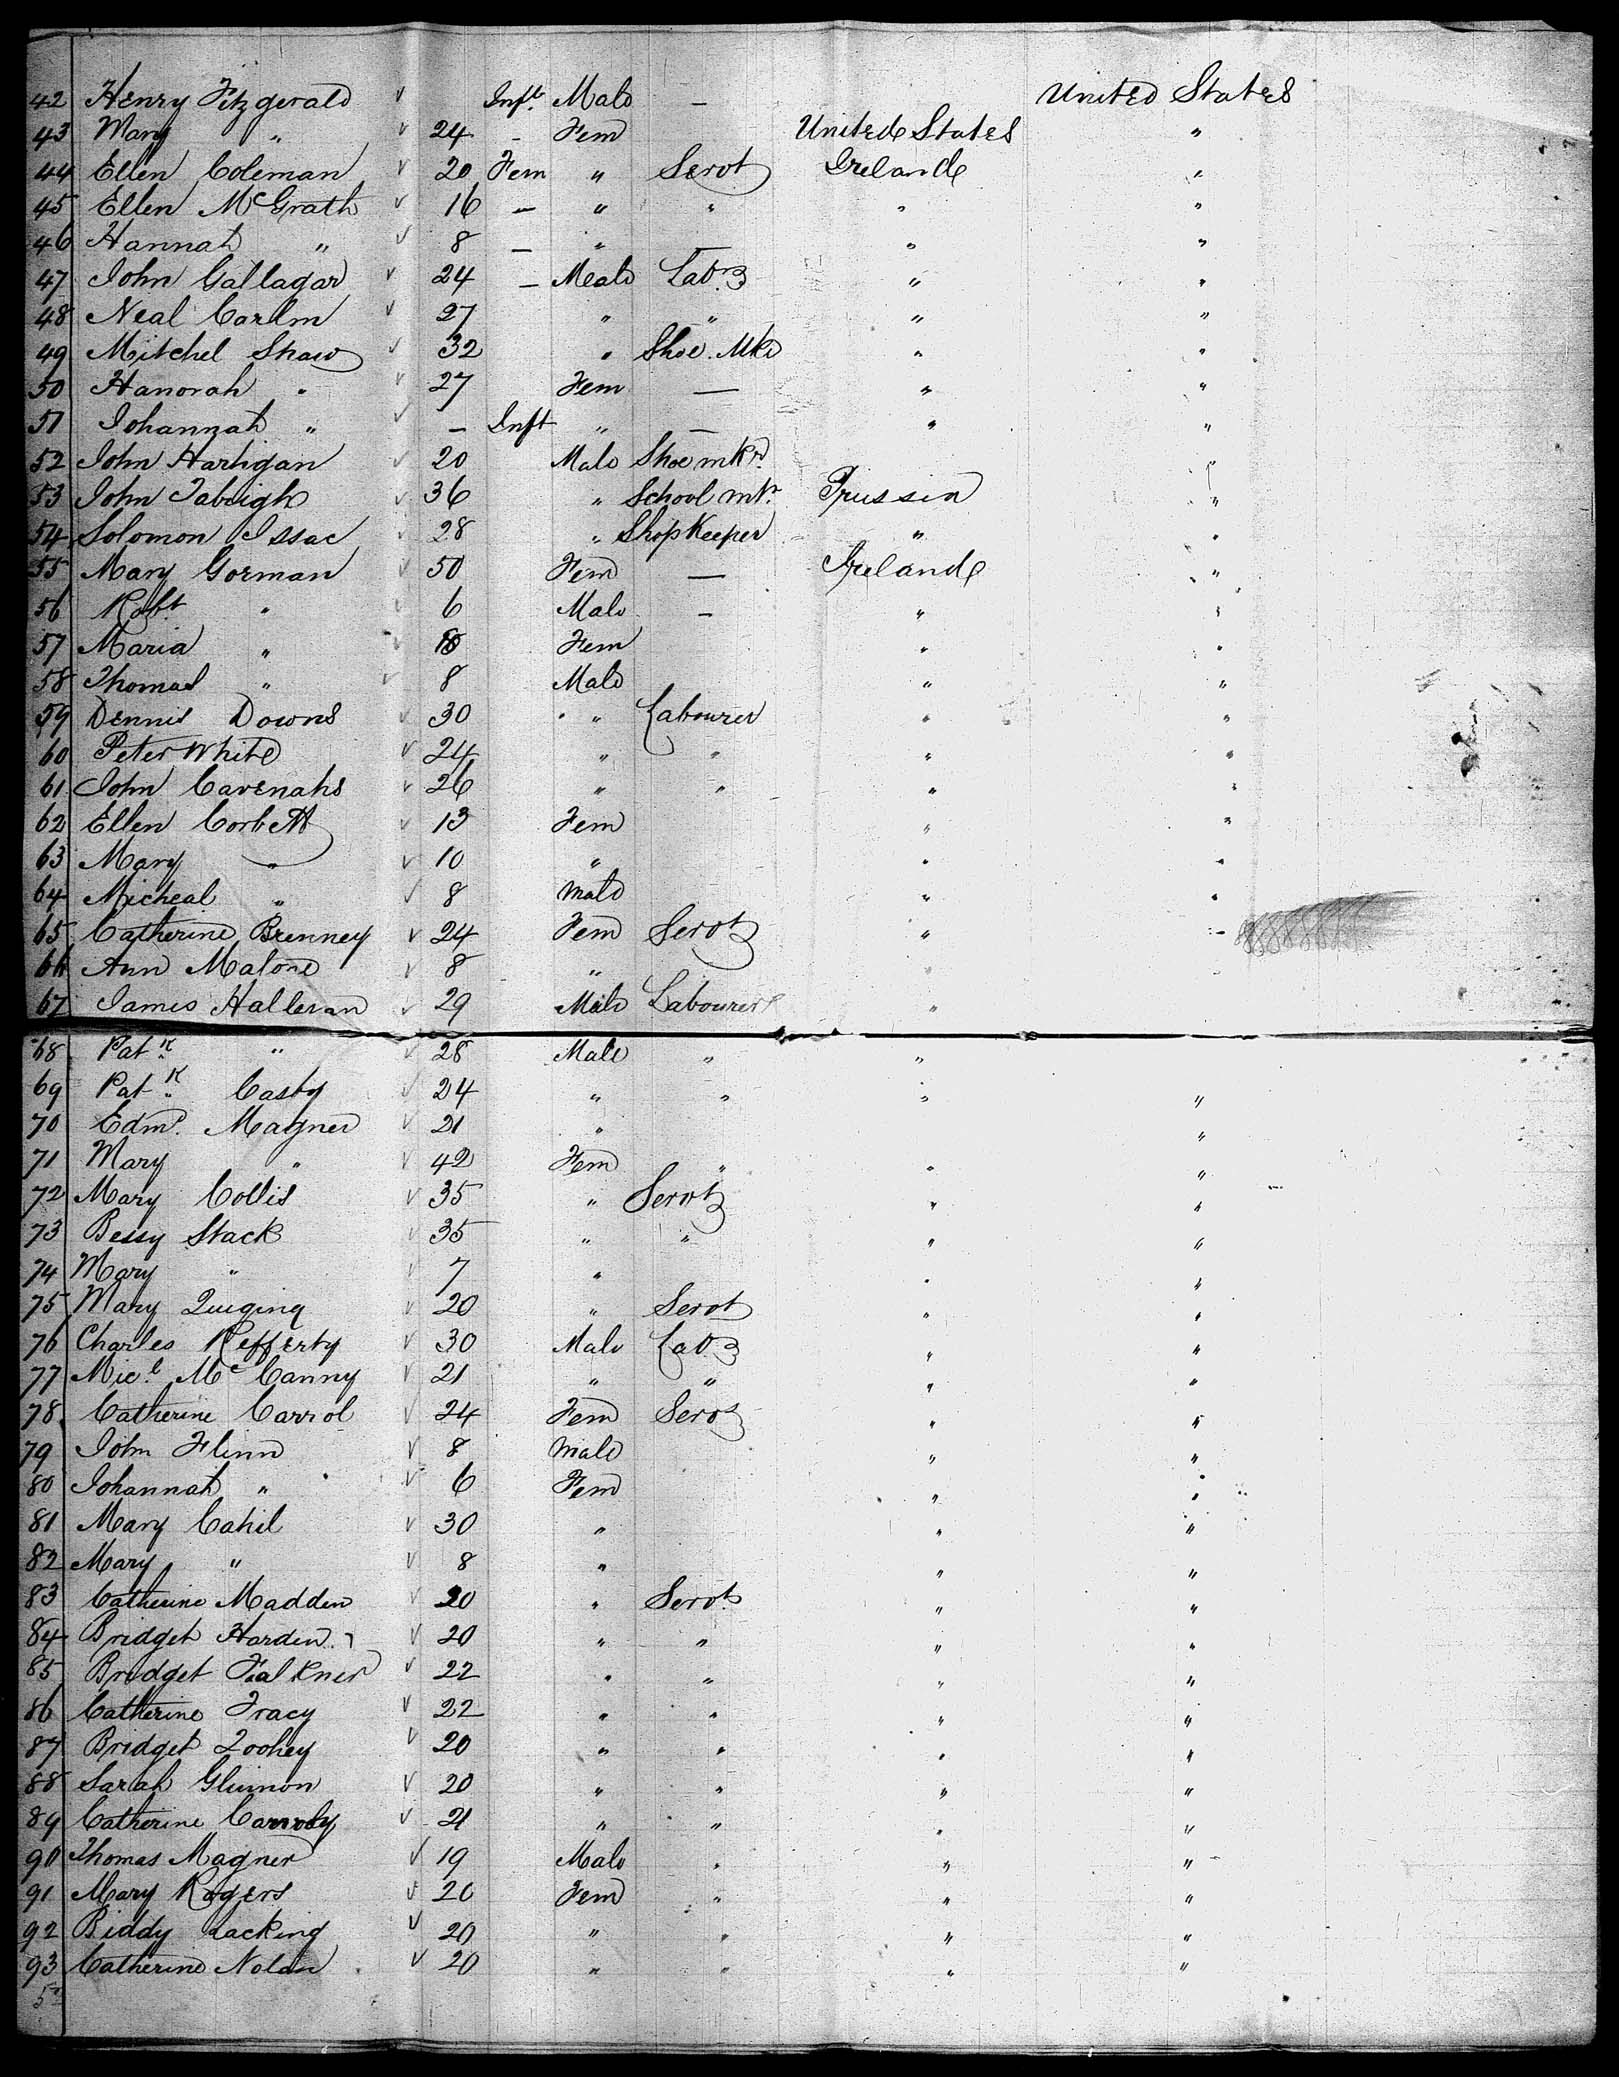 42 Henry Fitzgerald ✓ Inft. Male — United States
43 Mary " ✓ 24 — Fem United States "
44 Ellen Coleman ✓ 20 Fem " Servt Ireland "
45 Ellen McGrath ✓ 16 — " " " "
46 Hannah " ✓ 8 — " — " "
47 John Gallagar ✓ 24 — Male Labr " "
48 Neal ✓ 27 " " " "
49 Mitchel Shaw ✓ 32 " Shoe Mkr " "
50 Hanorah " ✓ 27 Fem — " "
51 Johannah " ✓ — Inft " — " "
52 John Hartigan ✓ 20 Male Shoe mkr. "
53 John ✓ 36 " School mtr. Prussia "
54 Solomon Issac ✓ 28 " Shop Keeper " "
55 Mary Gorman ✓ 50 Fem — Ireland "
56 Robt. " ✓ 6 Male — " "
57 Maria " ✓ Fem " "
58 Thomas " ✓ 8 Male " "
59 Dennis Downs ✓ 30 " Labourer " "
60 Peter White ✓ 24 " " " "
61 John Cavenahs ✓ 26 " " " "
62 Ellen Corbett ✓ 13 Fem " "
63 Mary " ✓ 10 " " "
64 Micheal " ✓ 8 Male " "
65 Catherine Brenney ✓ 24 Fem Servt " "
66 Ann Malone ✓ 8 " "
67 James Halleran ✓ 29 Male Labourer "
68 Patk. " ✓ 28 Male " "
69 Patk. Casby ✓ 24 " " " "
70 Edmd. Magner ✓ 21 " "
71 Mary " ✓ 42 Fem " " "
72 Mary Collis ✓ 35 " Servt " "
73 Bessy Stack ✓ 35 " " " "
74 Mary " ✓ 7 " " "
75 Mary Quiging ✓ 20 " Servt " "
76 Charles Refferty ✓ 30 Male Labr " "
77 Micl. McCanny ✓ 21 " " " "
78 Catherine Carrol ✓ 24 Fem Servt " "
79 John Flinn ✓ 8 Male " "
80 Johannah " ✓ 6 Fem " "
81 Mary Cahil ✓ 30 " " "
82 Mary " ✓ 8 " " "
83 Catherine Madden ✓ 20 " Servt " "
84 Bridget Harden ✓ 20 " " " "
85 Bridget Falkner ✓ 22 " " " "
86 Catherine Tracy ✓ 22 " " " "
87 Bridget Toohey ✓ 20 " " " "
88 Sarah ✓ 20 " " " "
89 Catherine ✓ 21 " " " "
90 Thomas Magner ✓ 19 Male " " "
91 Mary Rogers ✓ 20 Fem " " "
92 Biddy Lacking ✓ 20 " " " "
93 Catherine Nolan ✓ 20 " " " "